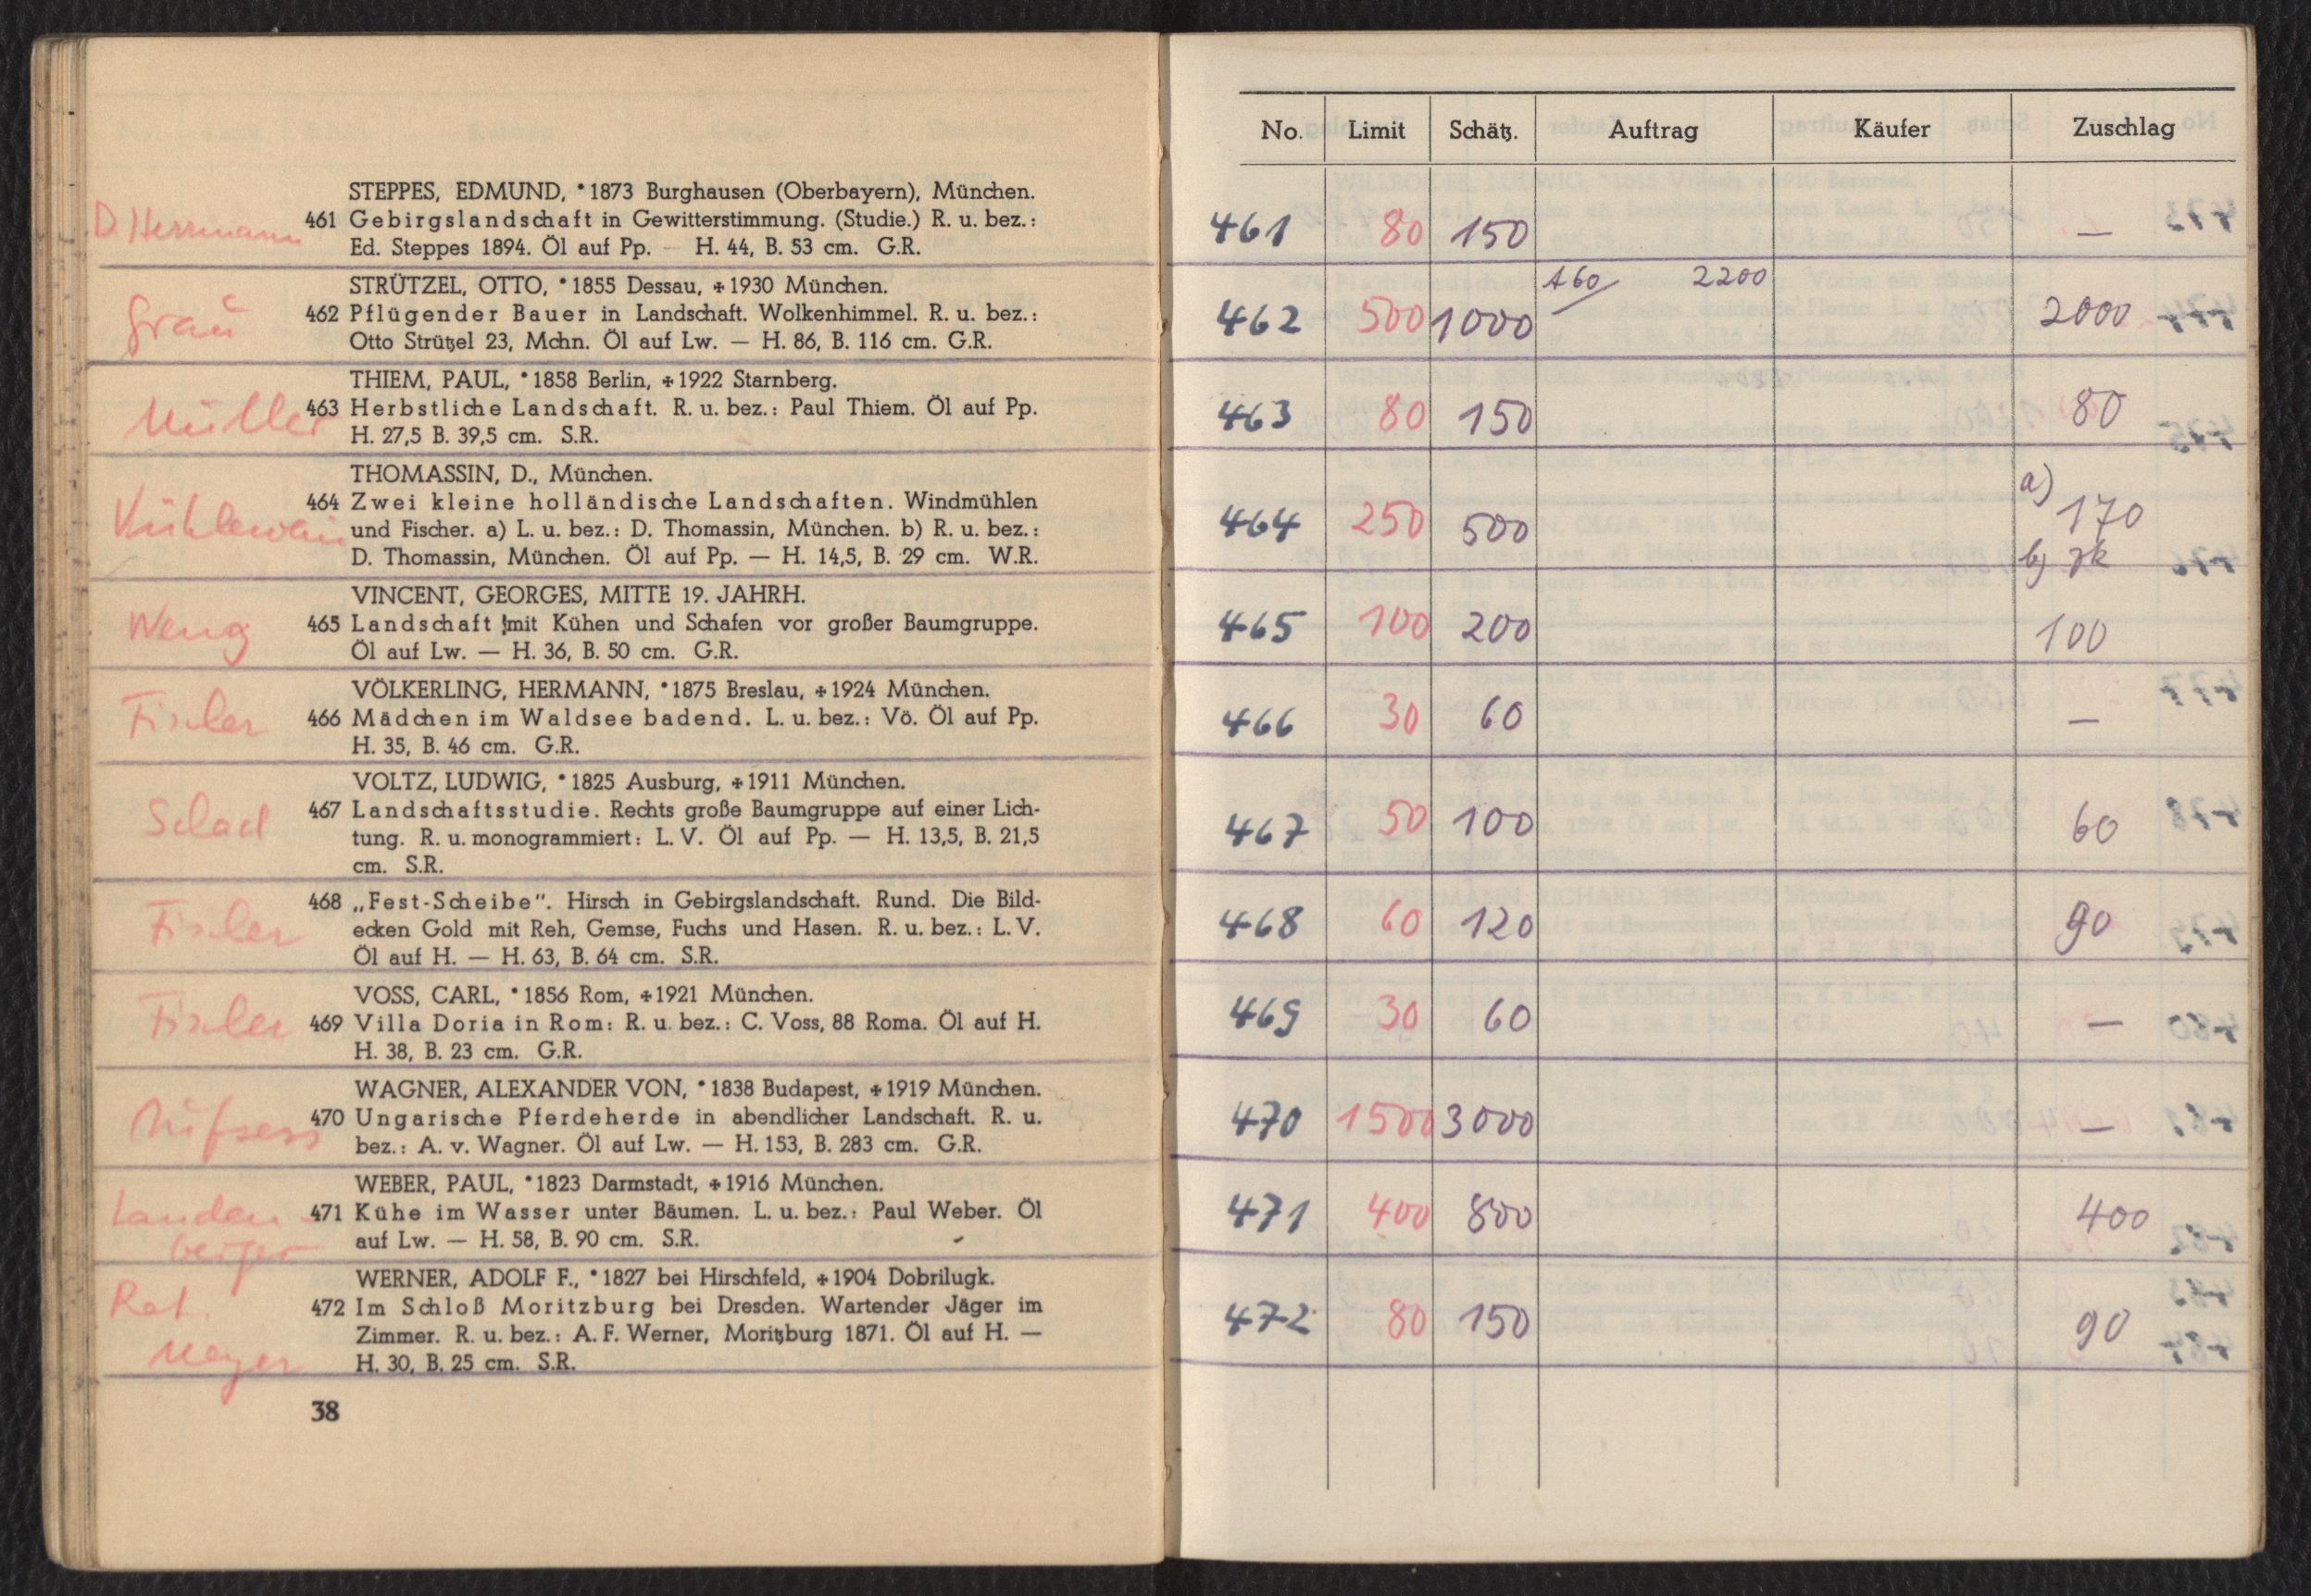 STEPPES, EDMUND, *1873 Burghausen (Oberbayern), München.
D. Herrmann 461 Gebirgslandschaft in Gewitterstimmung. (Studie.) R. u. bez.:
Ed. Steppes 1894. Öl auf Pp. — H. 44, B. 53 cm. G.R.
STRÜTZEL, OTTO, *1855 Dessau, ✢1930 München.
Grau 462 Pflügender Bauer in Landschaft. Wolkenhimmel. R. u. bez.:
Otto Strützel 23, Mchn. Öl auf Lw. — H. 86, B. 116 cm. G.R.
THIEM, PAUL, *1858 Berlin, ✢1922 Starnberg.
Müller 463 Herbstliche Landschaft. R. u. bez.: Paul Thiem. Öl auf Pp.
H. 27,5 B. 39,5 cm. S.R.
THOMASSIN, D., München.
464 Zwei kleine holländische Landschaften. Windmühlen
und Fischer. a) L. u. bez.: D. Thomassin, München. b) R. u. bez.:
D. Thomassin, München. Öl auf Pp. — H. 14,5, B. 29 cm. W.R.
VINCENT, GEORGES, MITTE 19. JAHRH.
Weng 465 Landschaft mit Kühen und Schafen vor großer Baumgruppe.
Öl auf Lw. — H. 36, B. 50 cm. G.R.
VÖLKERLING, HERMANN, *1875 Breslau, ✢1924 München.
Fischer 466 Mädchen im Waldsee badend. L. u. bez.: Vö. Öl auf Pp.
H. 35, B. 46 cm. G.R.
VOLTZ, LUDWIG, *1825 Ausburg, ✢1911 München.
467 Landschaftsstudie. Rechts große Baumgruppe auf einer Lich-
tung. R. u. monogrammiert: L. V. Öl auf Pp. — H. 13,5, B. 21,5
cm. S.R.
468 „Fest-Scheibe“. Hirsch in Gebirgslandschaft. Rund. Die Bild-
Fischer ecken Gold mit Reh, Gemse, Fuchs und Hasen. R. u. bez.: L. V.
Öl auf H. — H. 63, B. 64 cm. S.R.
VOSS, CARL, *1856 Rom, ✢1921 München.
Fischer 469 Villa Doria in Rom: R. u. bez.: C. Voss, 88 Roma. Öl auf H.
H. 38, B. 23 cm. G.R.
WAGNER, ALEXANDER VON, *1838 Budapest, ✢1919 München.
Aufsess 470 Ungarische Pferdeherde in abendlicher Landschaft. R. u.
bez.: A. v. Wagner. Öl auf Lw. — H. 153, B. 283 cm. G.R.
WEBER, PAUL, *1823 Darmstadt, ✢1916 München.
Landen- 471 Kühe im Wasser unter Bäumen. L. u. bez.: Paul Weber. Öl
berger auf Lw. — H. 58, B. 90 cm. S.R.
WERNER, ADOLF F., *1827 bei Hirschfeld, ✢1904 Dobrilugk.
472 Im Schloß Moritzburg bei Dresden. Wartender Jäger im
Zimmer. R. u. bez.: A. F. Werner, Moritzburg 1871. Öl auf H. —
Meyer H. 30, B. 25 cm. S.R.
38
No. Limit Schätz. Auftrag Käufer Zuschlag
461 80 150 —
462 500 1000 A60/ 2200 2000
463 80 150 80
464 250 500 a) 170
b) zk
465 100 200 100
466 30 60 —
467 50 100 60
468 60 120 90
469 30 60 —
470 1500 3000 —
471 400 800 400
472 80 150 90